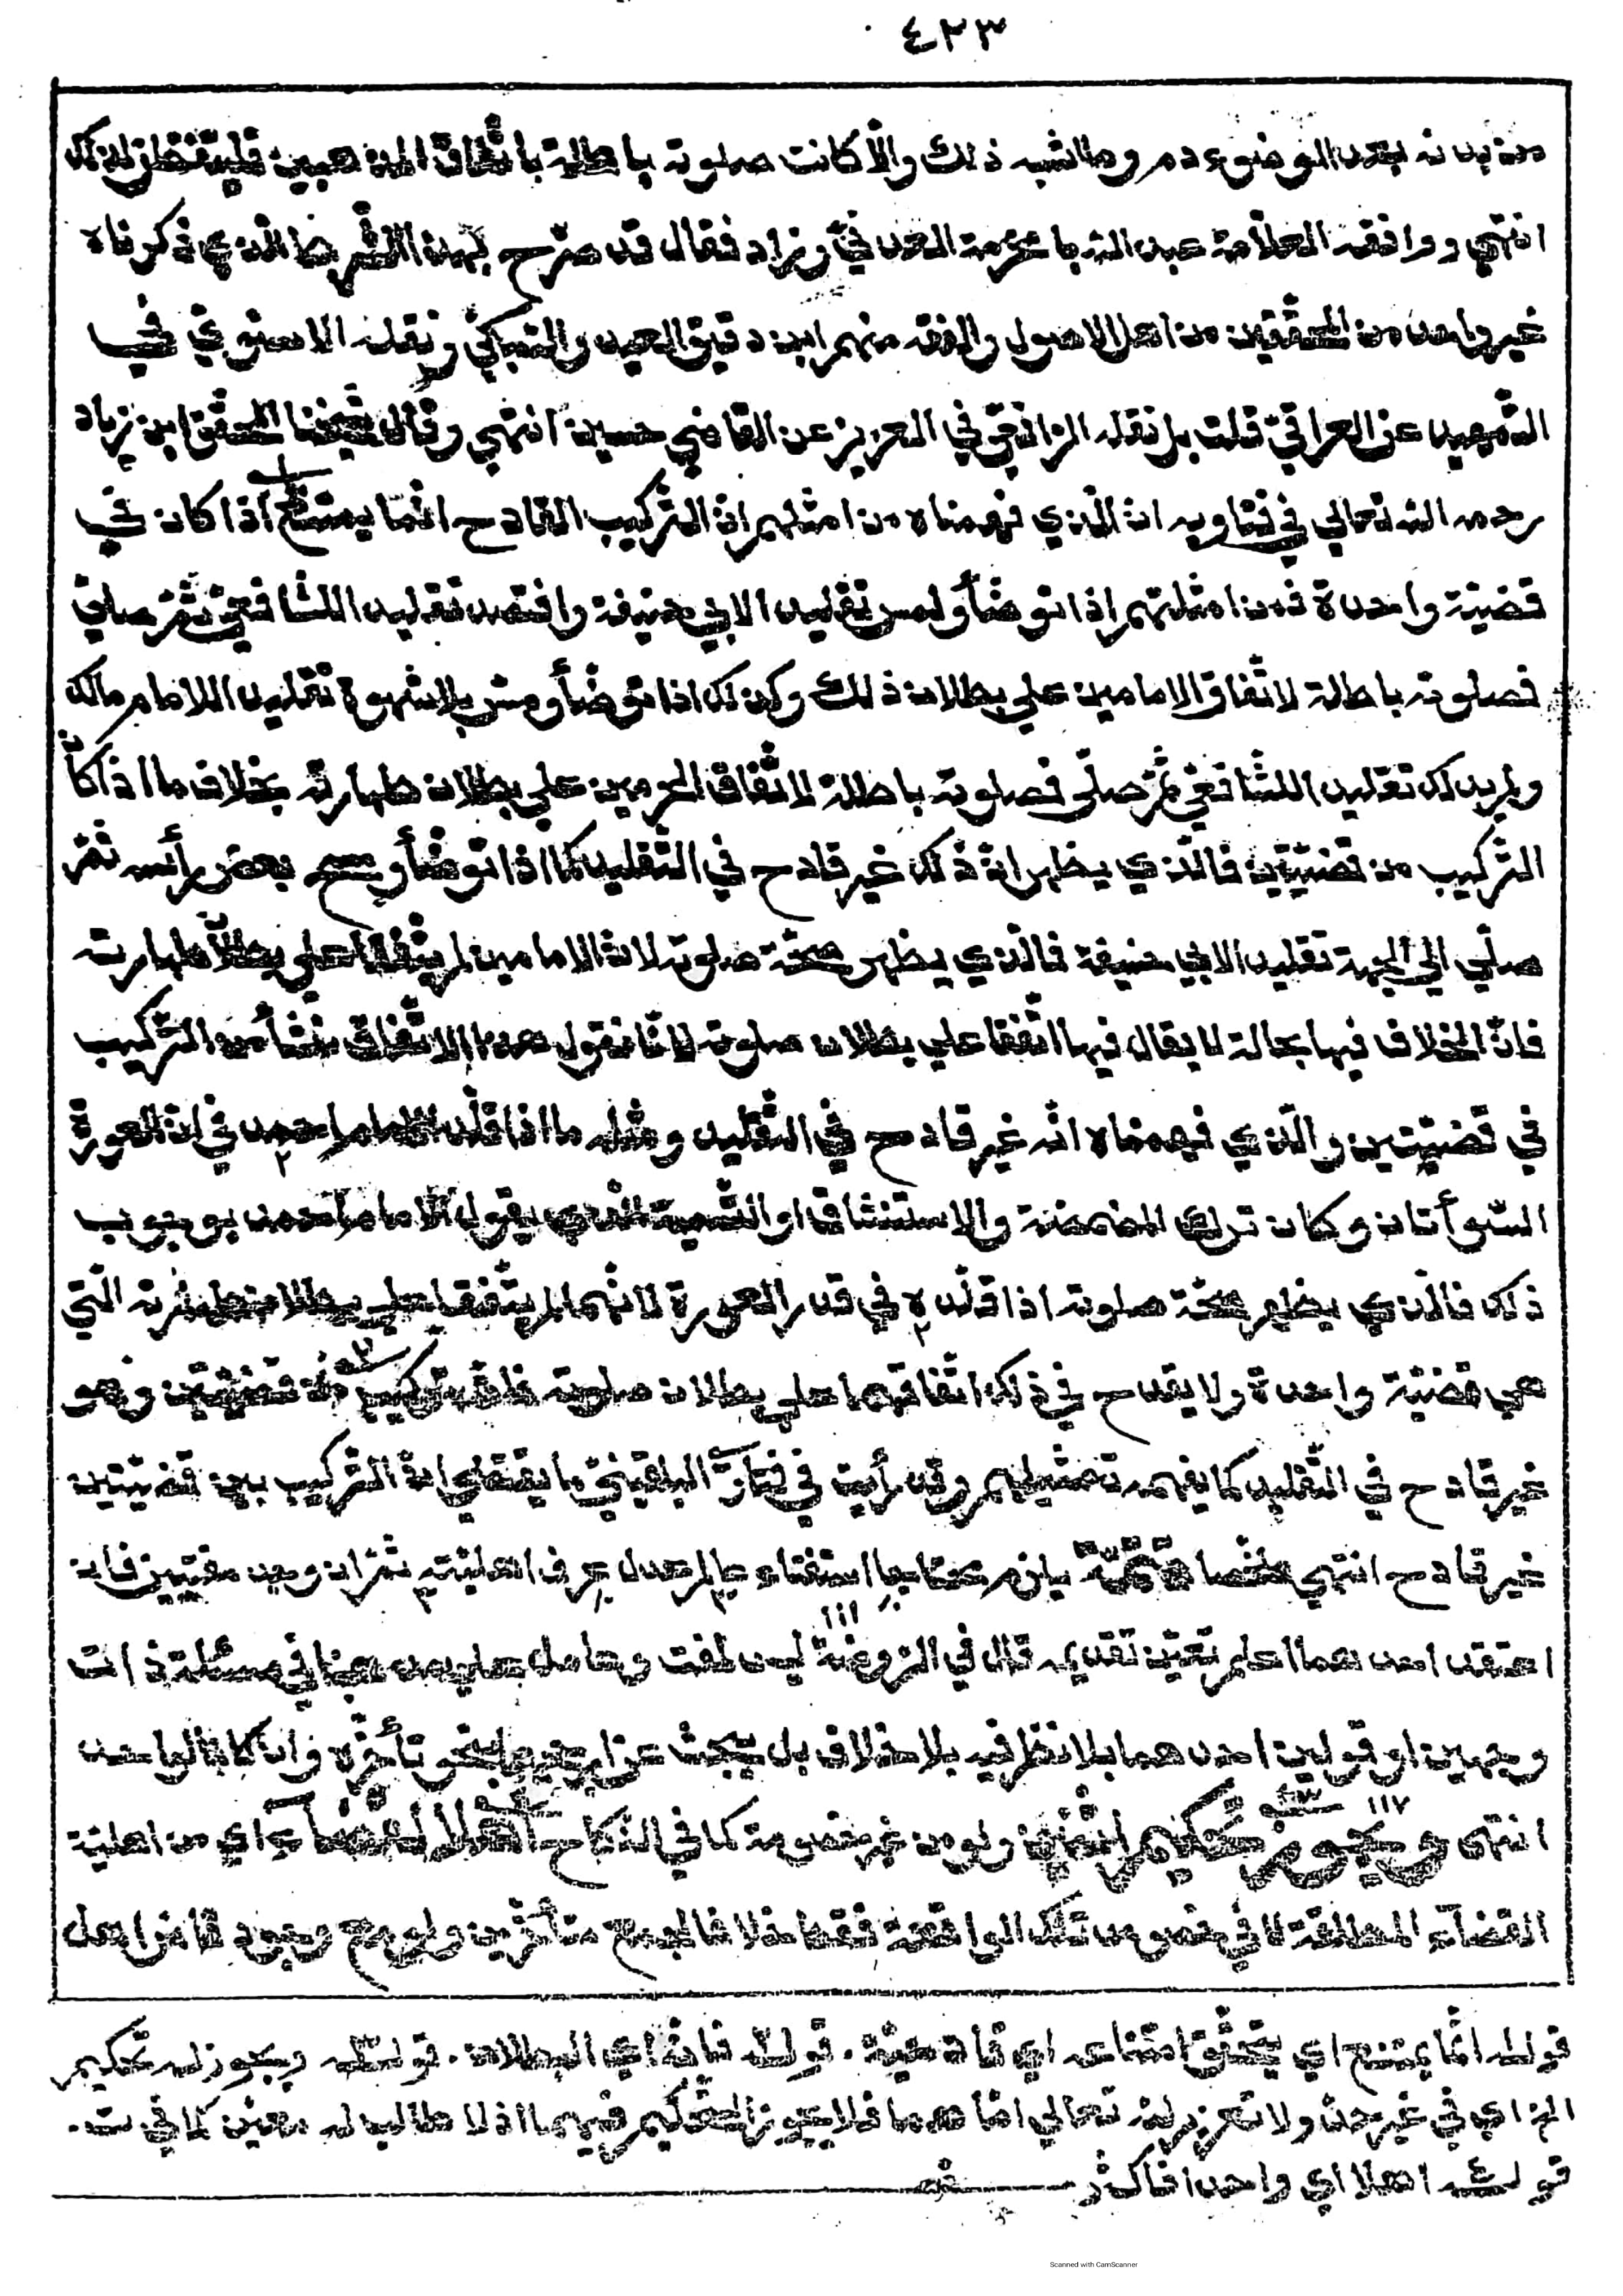 ٤٢٣
من بدنه بعد الوضوء دم وما اشبه ذلك والّا كانت صلوته باطلة باتّفاق المذهبين فليتفطّن لذلك
انتهي ووافقه العلّامة عبد اللّه با مخرمة العدنيّ وزاد فقال قد صرّح بهذا الشّرط الّذي ذكرناه
غير واحد من المحقّقين من اهل الاصول والفقه منهم ابن دقيق العيد والسّبكيّ ونقله الاسنويّ في
التّمهيد عن العراقيّ قلت بل نقله الرّافعيّ في العزيز عن القاضي حسين انتهي وقال شيخنا المحقّق ابن زياد
رحمه اللّه تعالي في فتاويه انّ الّذي فهمناه من امثلتهم انّ التّركيب القادح انّما يمتنع اذا كان في
قضيّة واحدة فمن امثلتهم اذا توضّأ ولمس تقليدا لابي حنيفة وافتصد تقليدا للشّافعيّ ثمّ صلّي
فصلوته باطلة لاتّفاق الامامين علي بطلان ذلك وكذلك اذا توضّأ ومسّ بلا شهوة تقليدا للامام مالك
ولم يدلك تقليدا للشّافعيّ ثمّ صلّي فصلوته باطلة لاتّفاق الامامين علي بطلان طهارته بخلاف ما اذا كان
التّركيب من قضيّتين فالّذي يظهر انّ ذلك غير قادح في التّقليد كما اذا توضّأ ومسح بعض رأسه ثمّ
صلّي الي الجهة تقليدا لابي حنيفة فالّذي يظهر صحّة صلوته لانّ الامامين لم يتّفقا علي بطلان طهارته
فانّ الخلاف فيها بحاله لا يقال فيها اتّفقا علي بطلان صلوته لانّا نقول هذا الاتّفاق ينشأ من التّركيب
في قضيّتين والّذي فهمناه انّه غير قادح في التّقليد ومثله ما اذا قلّد الامام احمد في انّ العورة
السّوأتان وكان ترك المضمضة والاستنشاق او التّسمية الّذي يقول الامام احمد بوجوب
ذلك فالّذي يظهر صحّة صلوته اذا قلّده في قدر العورة لانّهما لم يتّفقا علي بطلان طهارته الّتي
هي قضيّة واحدة ولا يقدح في ذلك اتّفاقهما علي بطلان صلوته فانّه تركيب من قضيّتين وهو
غير قادح في التّقليد كما يفهمه تمثيلهم وقد رأيت في فتاوي البلقينيّ ما يقتضي انّ التّركيب بين قضيّتين
غير قادح انتهي ملخّصا تتمّة يلزم محتاجا استفتاء عالم عدل عرف اهليّته ثمّ ان وجد مفتيين فان
اعتقد احدهما اعلم تعيّن تقديمه قال في الرّوضة ليس لمفت وعامل علي مذهبنا في مسئلة ذات
وجهين او قولين احدهما بلا نظر فيه بلا خلاف بل يبحث عن ارجحهما بنحو تأخّره وان كانا لواحد
انتهي ويجوز تحكيم اثنين ولو من غير خصومة كما في النّكاح اهلا لقضاء اي من اهليّة
القضاء المطلقة لا في خصوص تلك الواقعة فقط خلافا لجمع متأخّرين ولو مع وجود قاض اهل
قوله انّما يمتنع اي يتحقّق امتناعه اي قادحيّة. قوله فانّه اي البطلان. قوله ويجوز له تحكيم
الخ اي في غير حدّ ولا تعزير للّه تعالي امّا هما فلا يجوز التّحكيم فيهما اذ لا طالب له معيّن كما في ت.
قوله اهلا اي واحدا فاكثر
Scanned with CamScanner